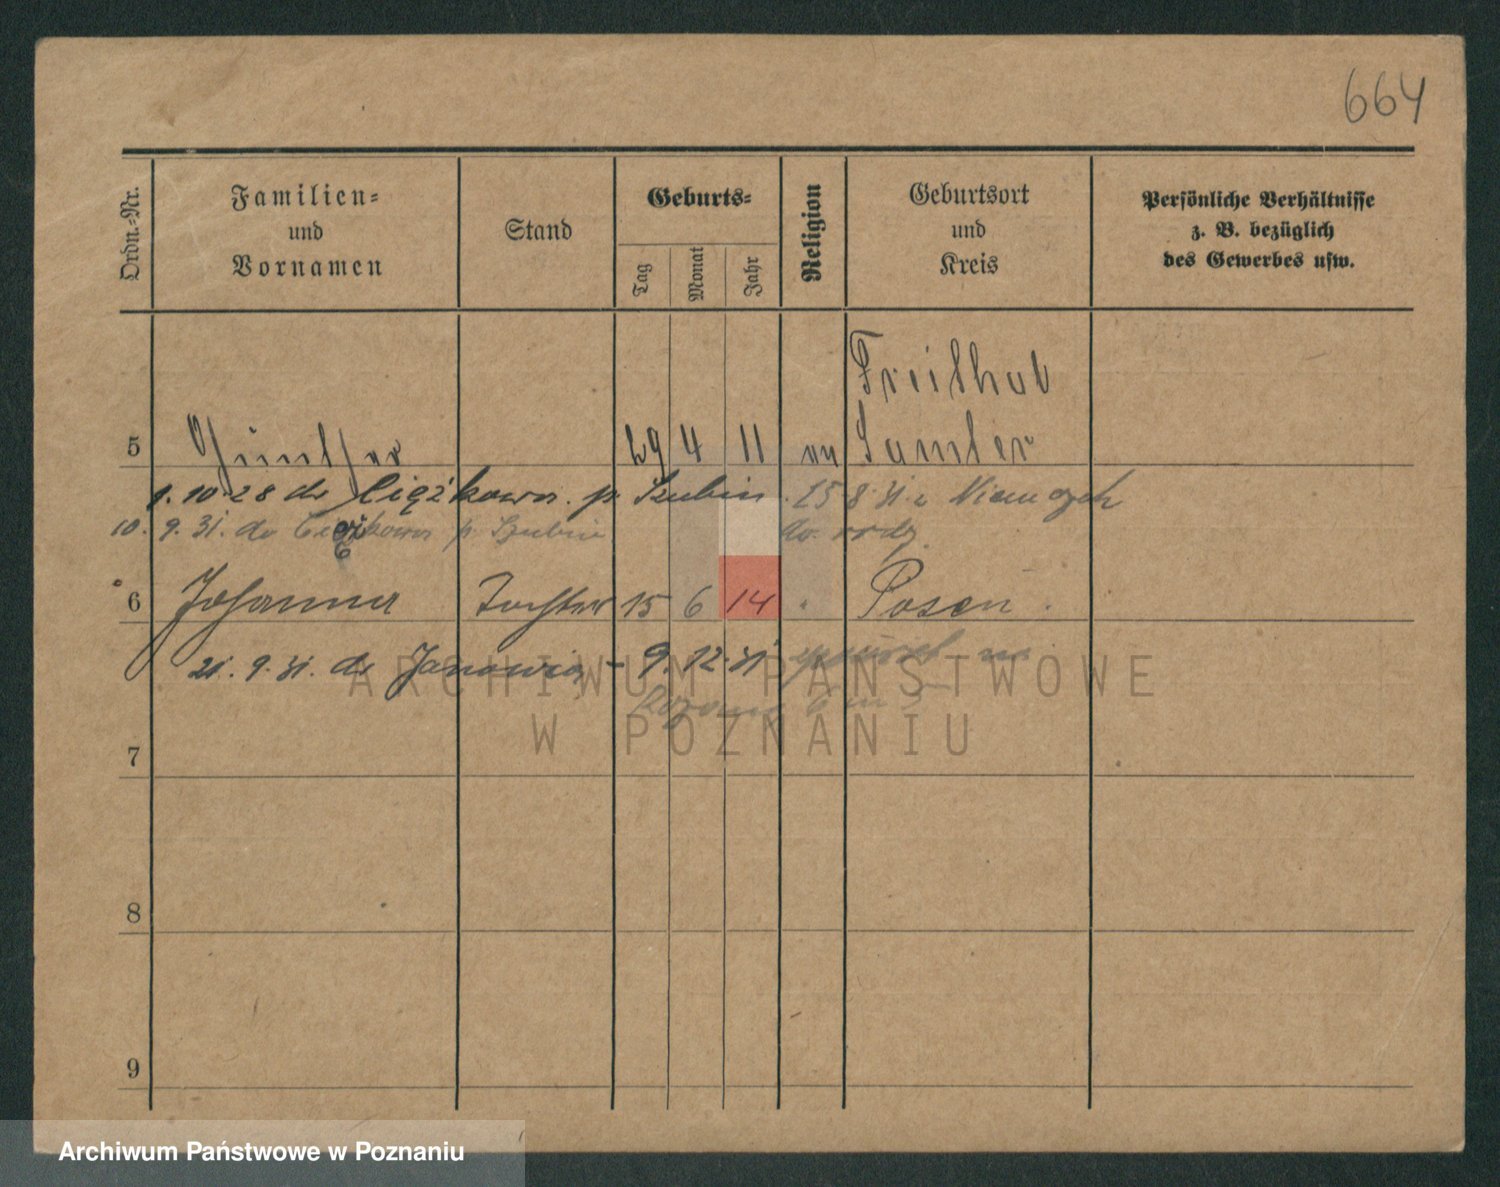 664
Ordn.-Nr.
Familien-
und
Vornamen
Stand
Geburts-
Tag
Monat
Jahr
Religion
Geburtsort
und
Kreis
Persönliche Verhältnisse
z. B. bezüglich
des Gewerbes usw.
5 Günther 29 4 11
Samter
1.10.28 do Ciężkowa p. Szubin 15 8 31 z Niemczech
10. 9. 31. do p. Szubin
6 Johanna Tochter 15 6 14 Posen
21. 9. 31. do Janowia - 9.12.31
7
8
9
ARCHIWUM PAŃSTWOWE
W POZNANIU
Archiwum Państwowe w Poznaniu